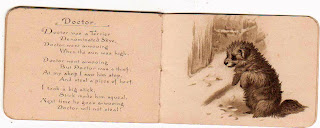 Doctor.
Doctor was a Terrier
Denominated Skye,
Doctor went a-mousing
When the sun was high.
Doctor went a-mousing
But Doctor was a thief,
At my shop I saw him stop,
And steal a piece of beef.
I took a big stick,
Struck make him squeal,
Next time he goes a-mousing
Doctor will not steal!